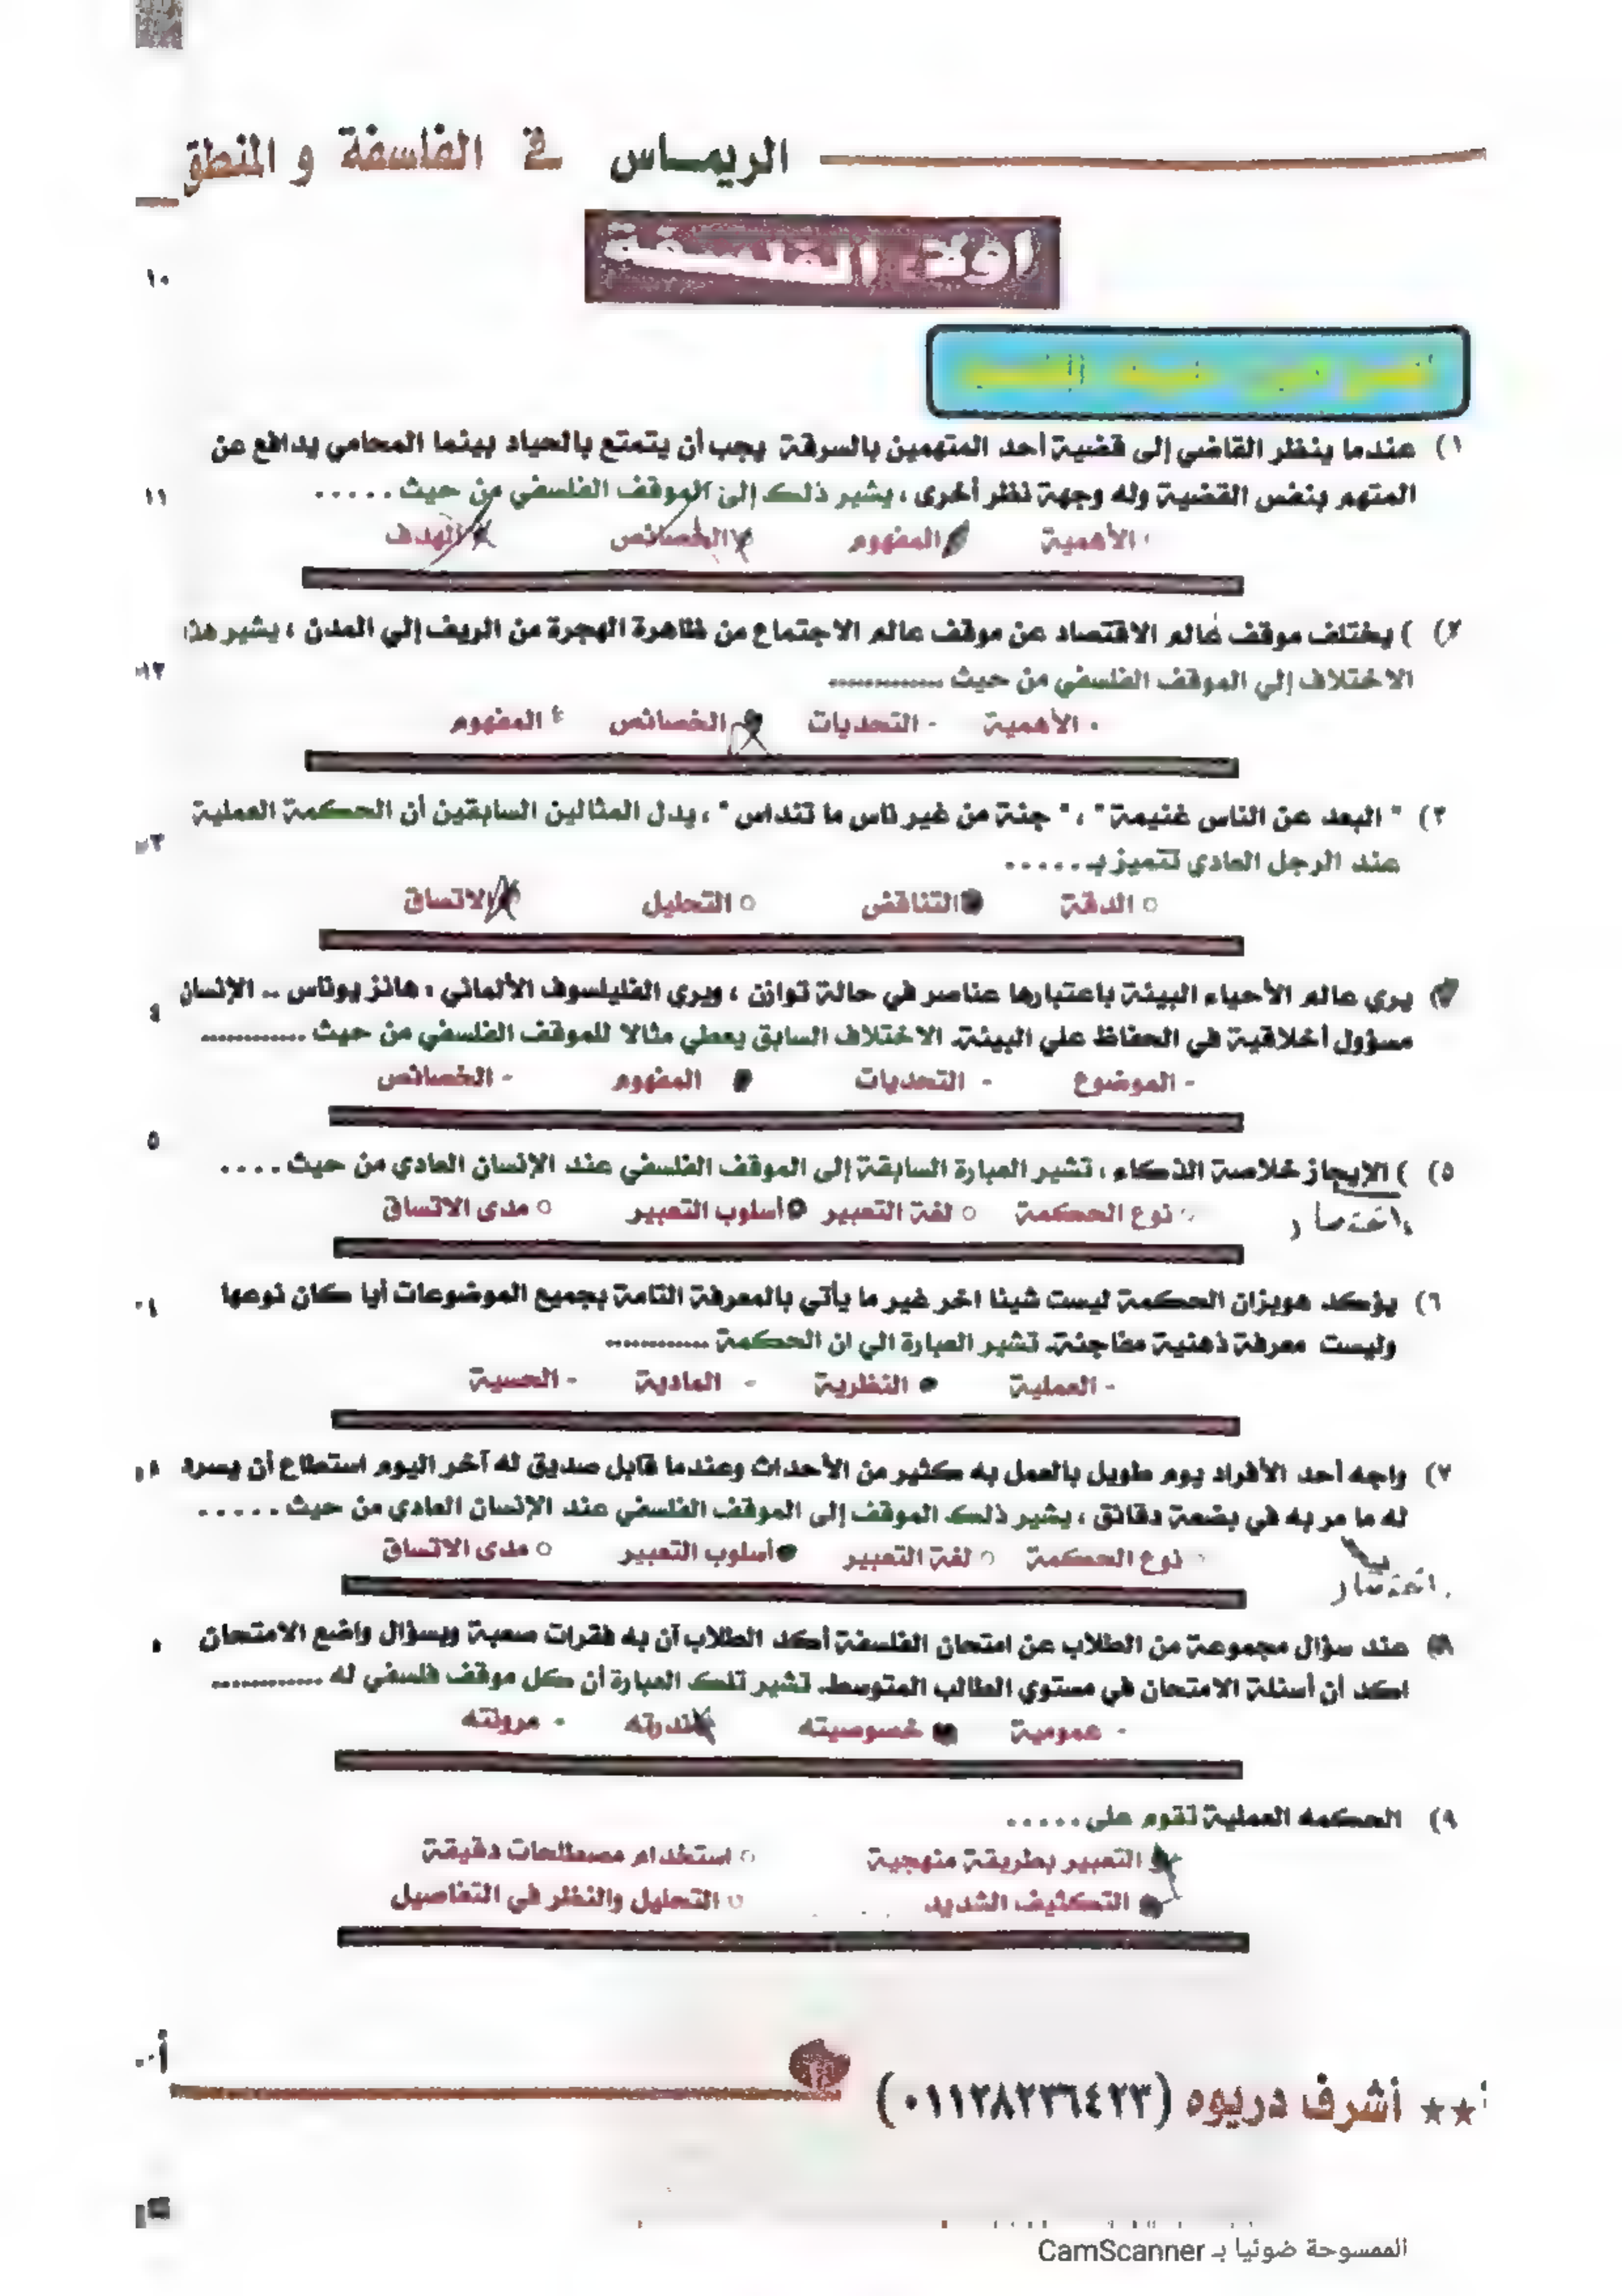 الريماس في الفلسفة و المنطق
اولا: الفلسفة
١٠
١) عندما ينظر القاضي إلى قضية أحد المتهمين بالسرقة يجب أن يتمتع بالحياد بينما المحامي يدافع عن
المتهم بنفس القضية وله وجهة نظر أخرى ، يشير ذلك إلى الموقف الفلسفي من حيث .....
١١
الأهمية المفهوم الخصائص الهدف
٢) ) يختلف موقف عالم الاقتصاد عن موقف عالم الاجتماع من ظاهرة الهجرة من الريف إلي المدن ، يشير هذا
الاختلاف إلي الموقف الفلسفي من حيث .............
١٢
- الأهمية - التحديات الخصائص المفهوم
٣) " البعد عن الناس غنيمة " ، " جنة من غير ناس ما تنداس " ، يدل المثالين السابقين أن الحكمة العملية
عند الرجل العادي تتميز بـ.....
○ الدقة التناقض ○ التحليل الاتساق
٤) يري عالم الأحياء البيئة باعتبارها عناصر في حالة توازن ، ويري الفليلسوف الألماني : هانز يوناس .. الإنسان
مسؤول أخلاقية في الحفاظ علي البيئة. الاختلاف السابق يعطي مثالا للموقف الفلسفي من حيث ............
- الموضوع - التحديات المفهوم - الخصائص
٥
٥) ) الإيجاز خلاصة الذكاء ، تشير العبارة السابقة إلى الموقف الفلسفي عند الإنسان العادي من حيث ....
○ نوع الحكمة ○ لغة التعبير أسلوب التعبير ○ مدى الاتساق
اختصار
٦) يؤكد هويزان الحكمة ليست شيئا اخر غير ما يأتي بالمعرفة التامة بجميع الموضوعات أيا كان نوعها
وليست معرفة ذهنية مفاجئة. تشير العبارة الي ان الحكمة ............
- العملية النظرية - العادية - الحسية
٧) واجه أحد الأفراد يوم طويل بالعمل به كثير من الأحداث وعندما قابل صديق له آخر اليوم استطاع أن يسرد
له ما مر به في بضعة دقائق ، يشير ذلك الموقف إلى الموقف الفلسفي عند الإنسان العادي من حيث .....
○ نوع الحكمة ○ لغة التعبير أسلوب التعبير ○ مدى الاتساق
اختصار
٨) عند سؤال مجموعة من الطلاب عن امتحان الفلسفة أكد الطلاب أن به فقرات صعبة وبسؤال واضع الامتحان
اكد أن أسئلة الامتحان في مستوي الطالب المتوسط. تشير تلك العبارة أن كل موقف فلسفي له ............
- عمومية خصوصيته ندرته - مرونته
٩) الحكمه العملية تقوم على .....
التعبير بطريقة منهجية ○ استخدام مصطلحات دقيقة
التكثيف الشديد ○ التحليل والنظر في التفاصيل
★★ أشرف دريوه (٠١١٢٨٢٣٦٤٢٣)
الممسوحة ضوئيا بـ CamScanner